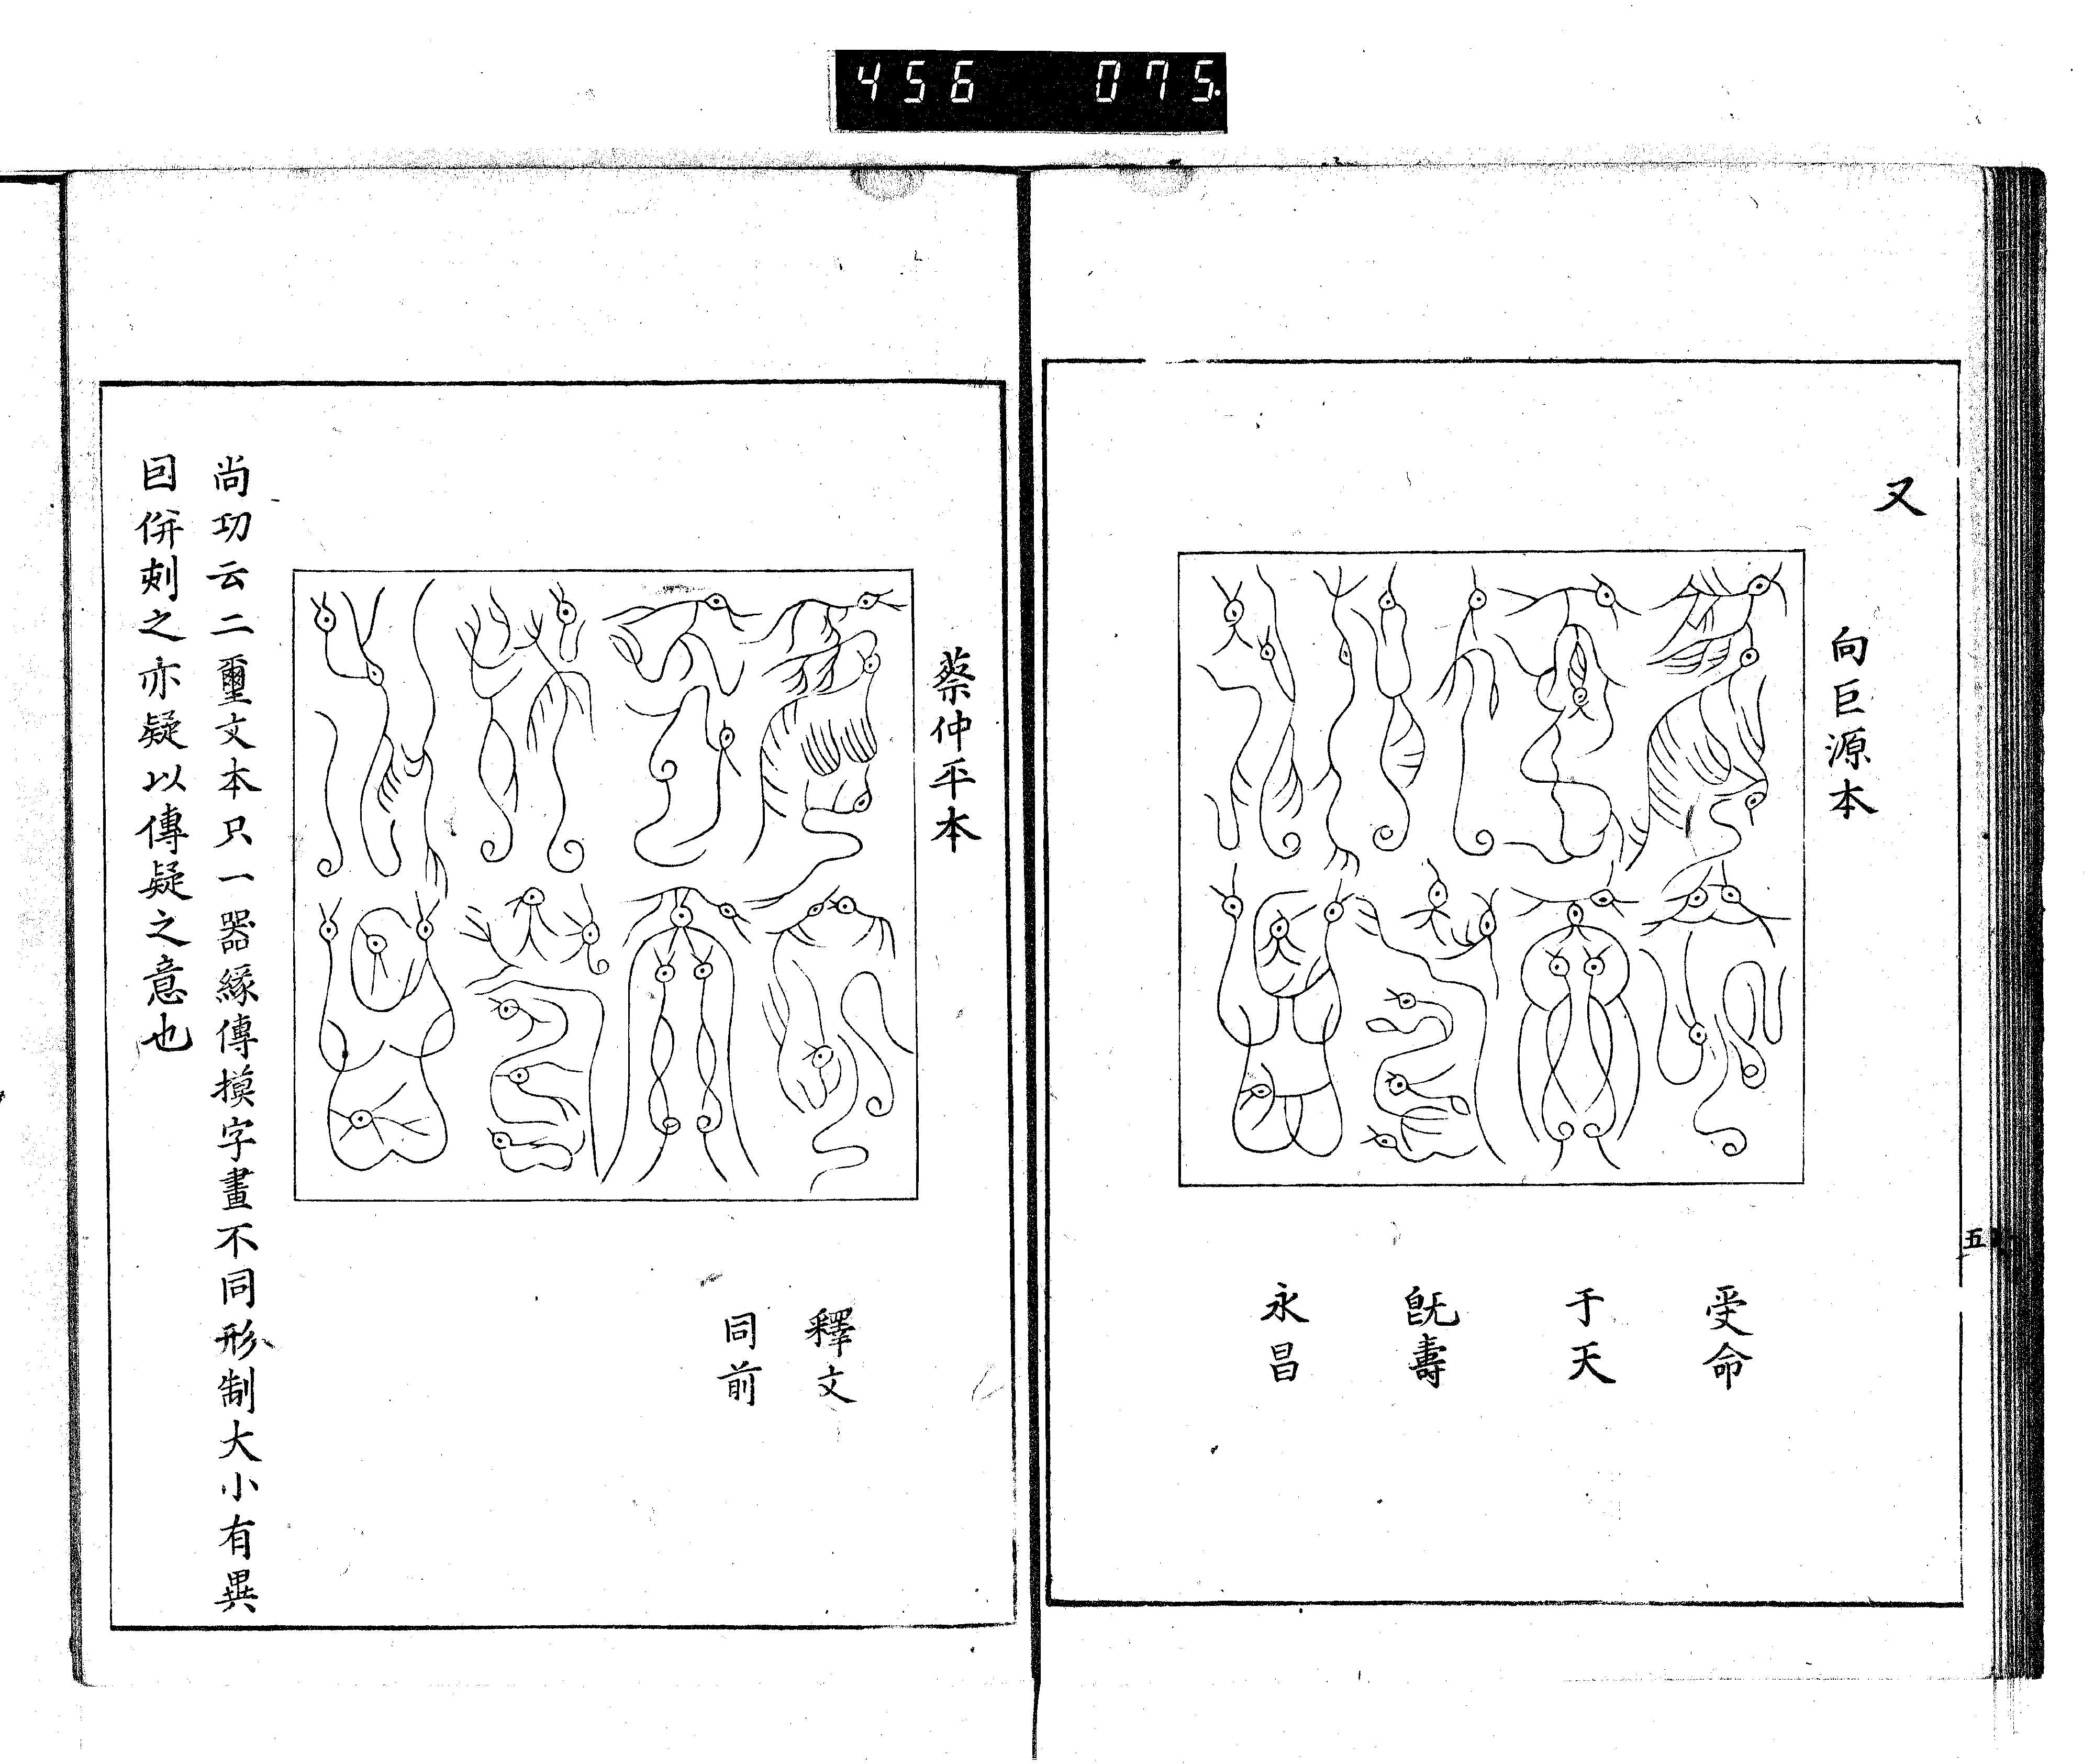 456 075.
又
向巨源本
受命
于天
旣壽
永昌
五
蔡仲平本
釋文
同前
尚功云二璽文本只一器緣傳摸字畫不同形制大小有異
囙併刻之亦疑以傳疑之意也